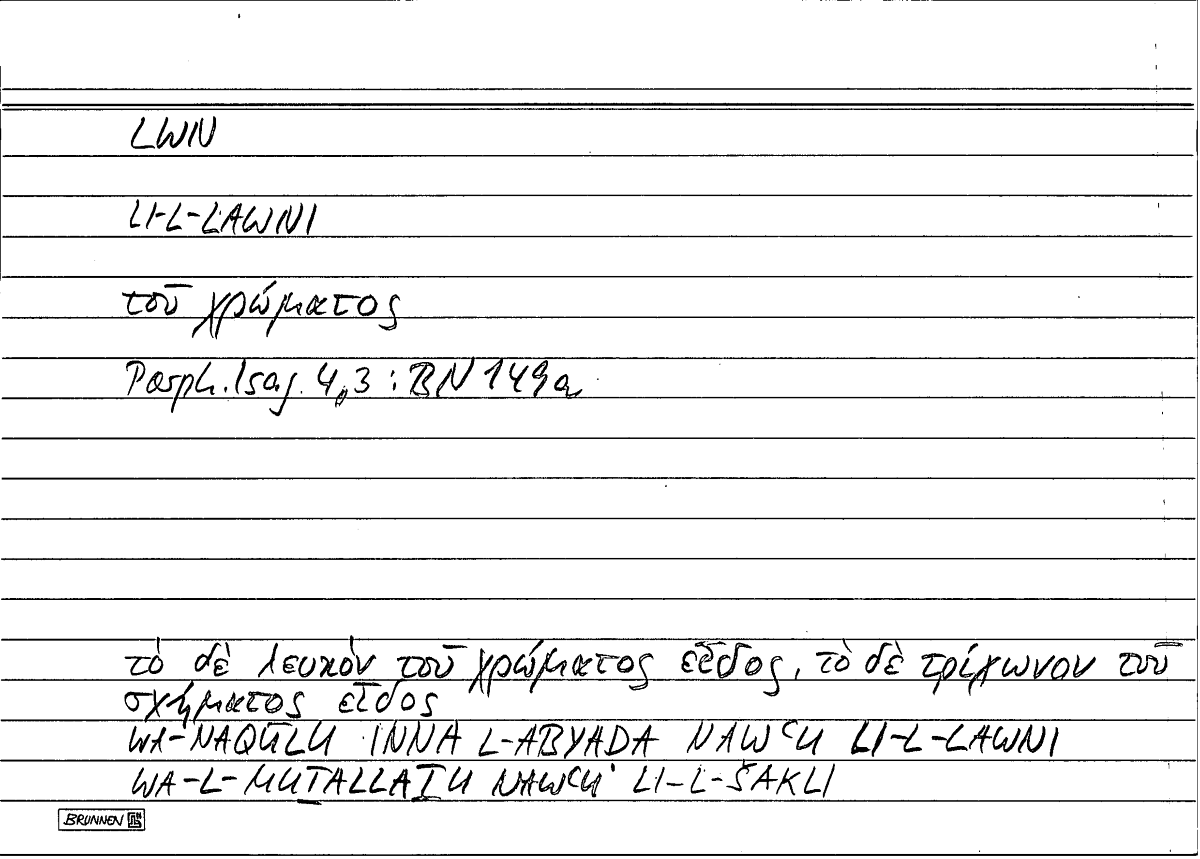 LWN
LI-L-LAWNI
τοῦ χρώματος
Porph. Isag. 4,3 : BN 149a
τὸ δὲ λευκὸν τοῦ χρώματος εἶδος, τὸ δὲ τρίγωνον τοῦ
σχήματος εἶδος
WA-NAQŪLU INNA L-ABYADA NAWʿU LI-L-LAWNI
WA-L-MUṮALLAṮU NAWʿU LI-L-ŠAKLI
BRUNNEN